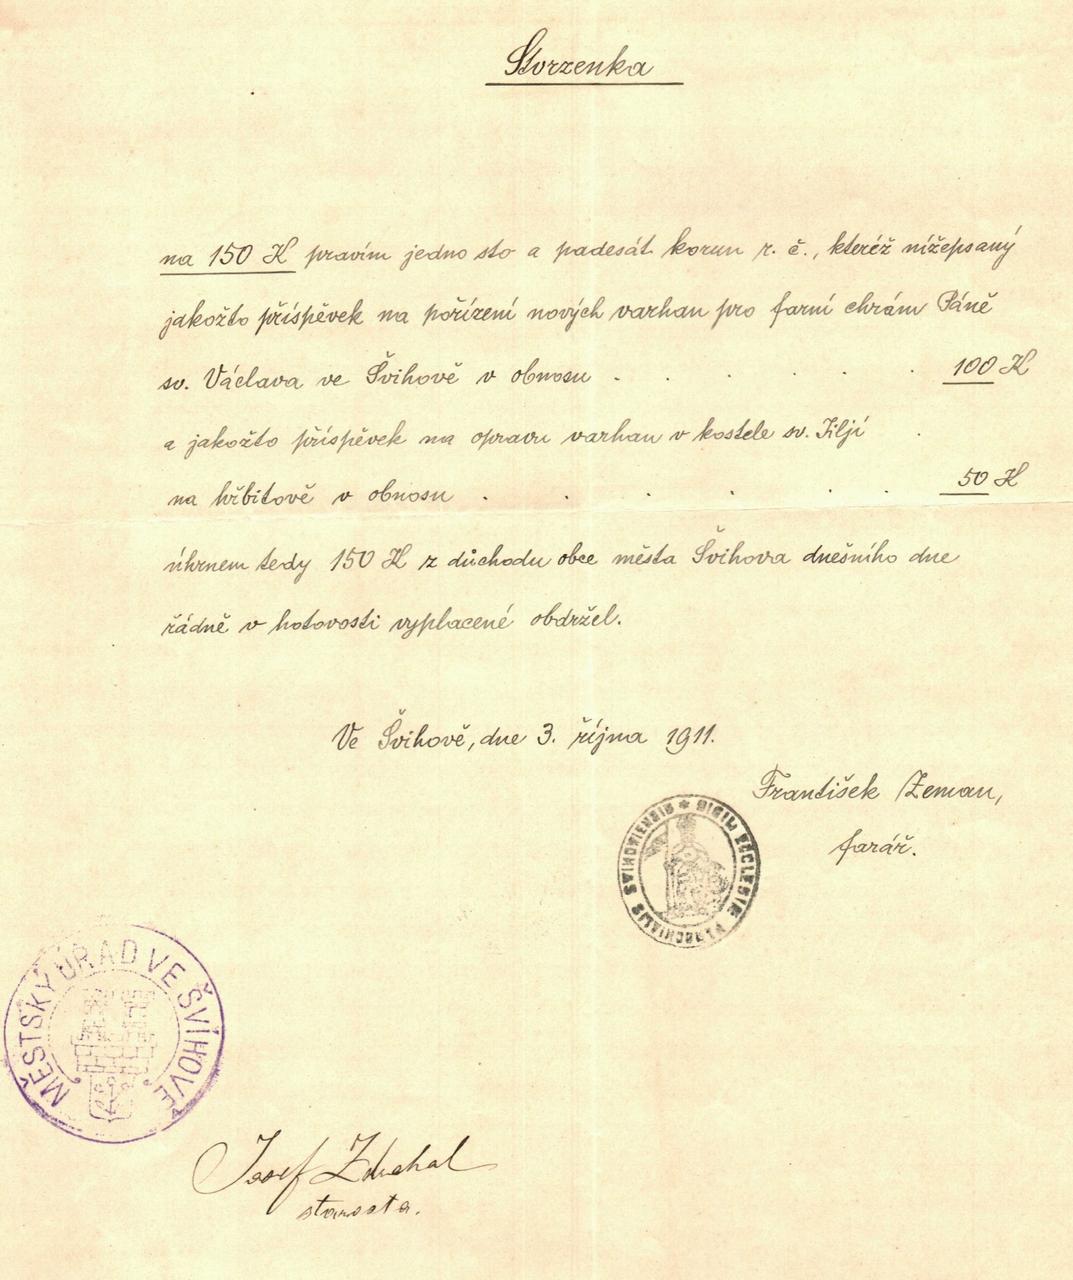 Stvrzenka
na 150 K pravím jedno sto a padesát korun r. č., kteréž nížepsaný
jakožto příspěvek na pořízení nových varhan pro farní chrám Páně
sv. Václava ve Švihově v obnosu . . . . . 100 K
a jakožto příspěvek na opravu varhan v kostele sv. Jiljí .
na hřbitově v obnosu . . . . . . 50 K
úhrnem tedy 150 K z důchodu obce města Švihova dnešního dne
řádně v hotovosti vyplacené obdržel.
Ve Švihově, dne 3. října 1911.
František Zeman,
farář.
SIGILL ECCLESIE PAROCHIALIS SVIHOVIENSIS
MĚSTSKÝ ÚŘAD VE ŠVIHOVĚ
Josef Zduchal
starosta.